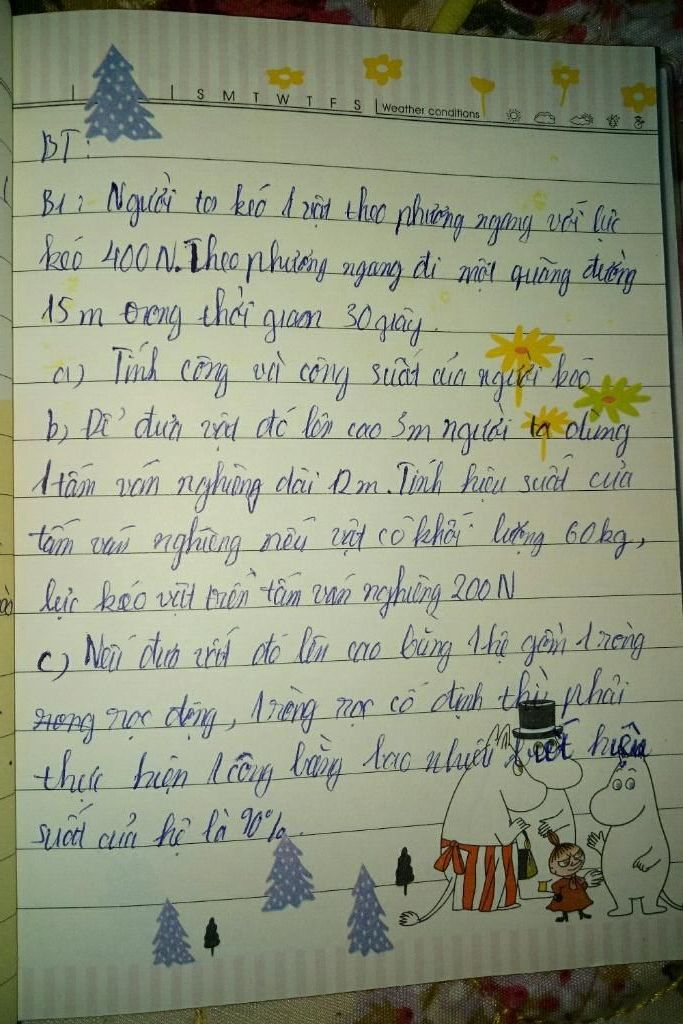 S M T W T F S Weather conditions
BT:
B1: Người ta kéo 1 vật theo phương ngang với lực
kéo 400N. Theo phương ngang đi một quãng đường
15m trong thời gian 30 giây.
a) Tính công và công suất của người kéo
b) Để đưa vật đó lên cao 3m người ta dùng
1 tấm ván nghiêng dài 12m. Tính hiệu suất của
tấm ván nghiêng nếu vật có khối lượng 60kg,
lực kéo vật trên tấm ván nghiêng 200N
c) Nếu đưa vật đó lên cao bằng 1 hệ gồm 1 ròng
rọc động, 1 ròng rọc cố định thì phải
thực hiện 1 công bằng bao nhiêu biết hiệu
suất của hệ là 90%.